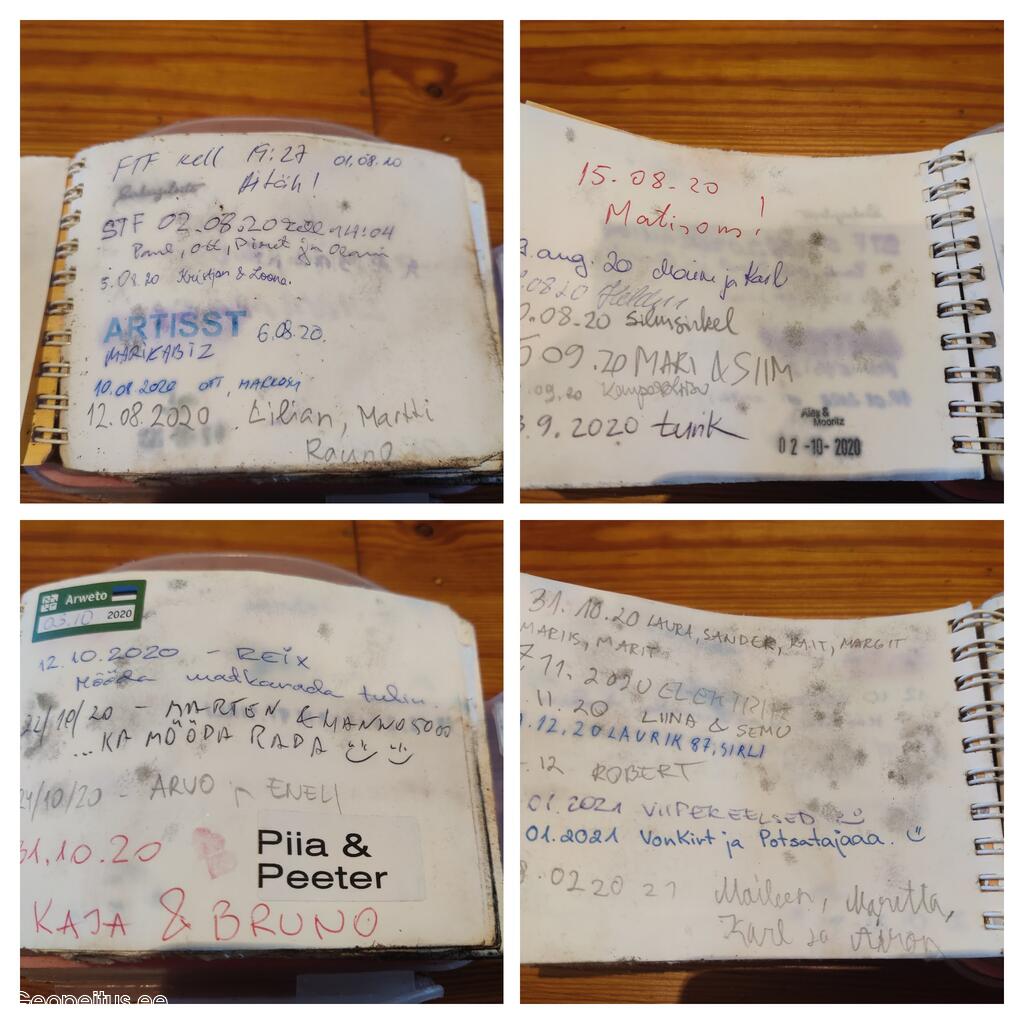 FTF kell 19:27 01.08.20
Aitäh!
STF 02.08.20 14:04
Paul, Ott, Piret ja
5.08.20 Kristjan & Loona.
ARTISST 6.08.20.
MARIKABIZ
10.08.2020 OTT, MARKUS
12.08.2020 Lilian, Martti
Rauno
15.08.20
Matisons!
aug. 20 ja Karl
.08.20
.08.20 Silmsirkel
09.20 MARI & SIIM
.09.20
.9.2020 turik
Alex &
Mooritz
02-10-2020
Arweto
03.10 2020
12.10.2020 - REIX
Mööda matkarada tulin.
22/10/20 - MARTEN & HANNO5000
...KA MÖÖDA RADA
24/10/20 - ARVO ja ENELI
31.10.20
Piia &
Peeter
KAJA & BRUNO
31.10.20 LAURA, SANDER, RAIT, MARGIT
MARIIS, MARIT
11.2020 ELEKTRIK
11.20 LIINA & SEMU
.12.20 LAURIK87, SIRLI
.12 ROBERT
01.2021 VIIPEREELSED
01.2021 VonKirt ja Potsatajaaa.
.02 20 21 Maileen, Maretta,
Karl ja Airon
Geopeitus.ee